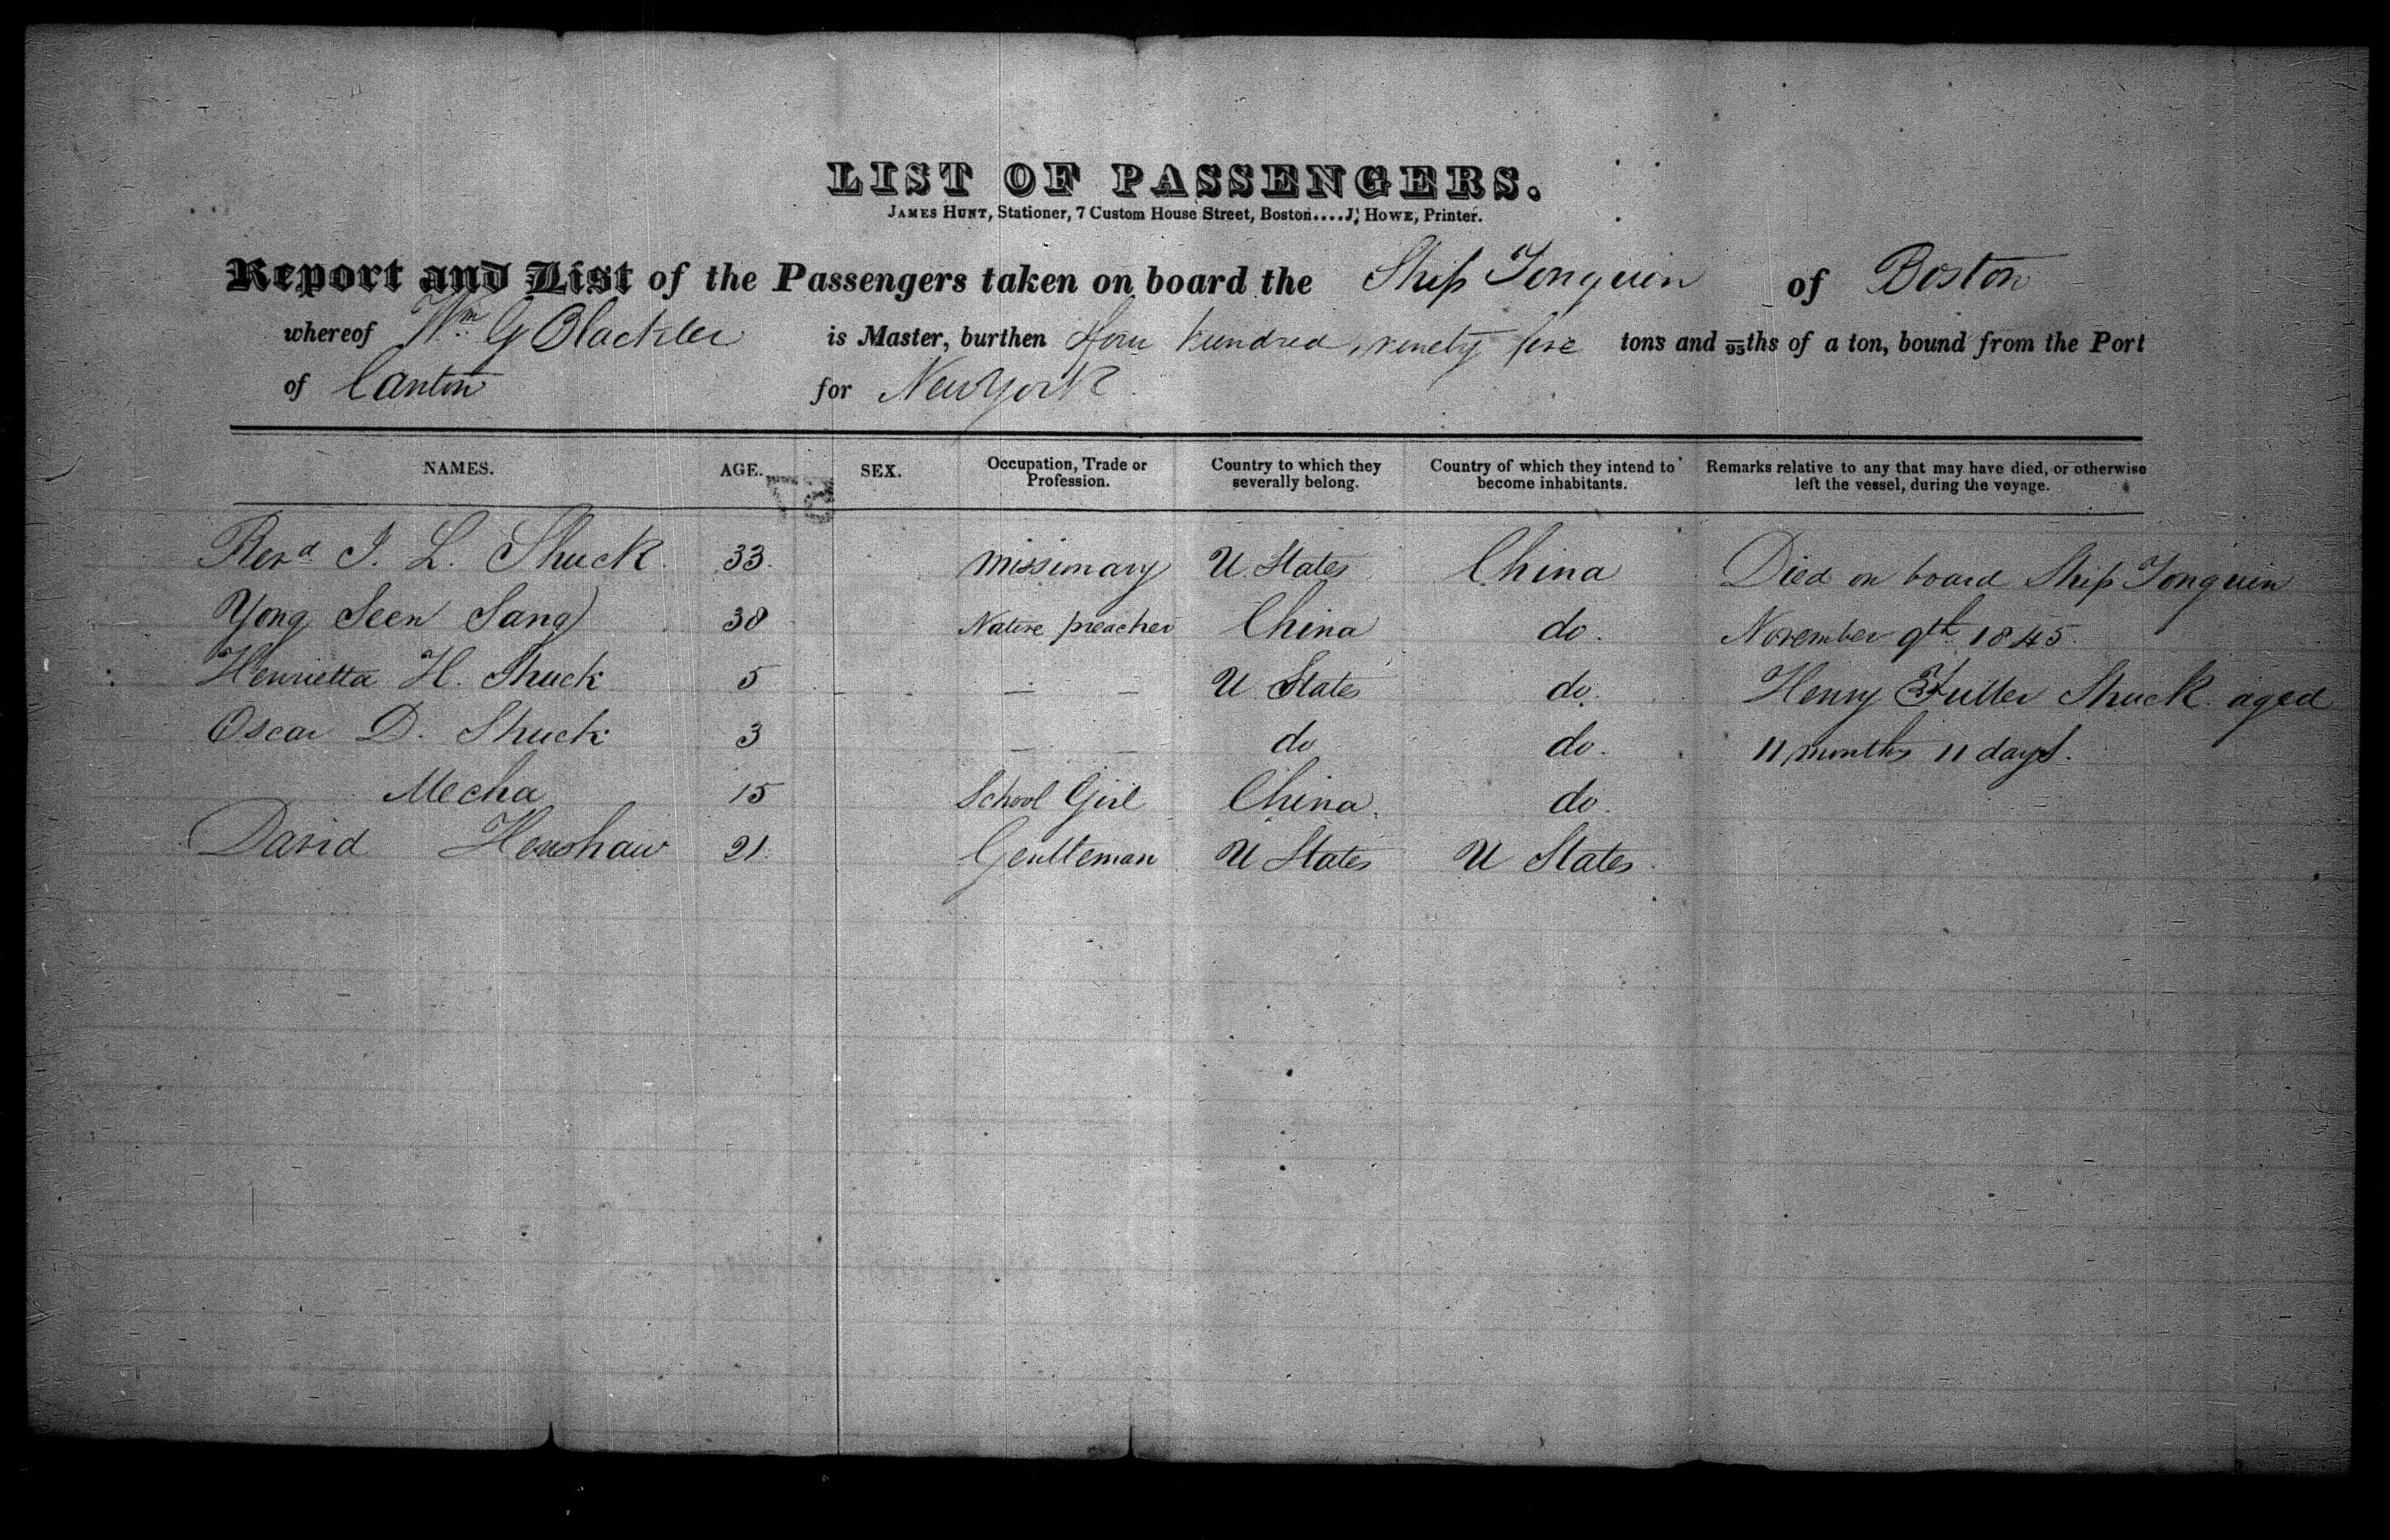 LIST OF PASSENGERS.
JAMES HUNT, Stationer, 7 Custom House Street, Boston....J. HOWE, Printer.
Report and List of the Passengers taken on board the Ship Tonquin of Boston
whereof Wm G Blackler is Master, burthen four hundred ninety five tons and /95ths of a ton, bound from the Port
of Canton for New York
NAMES. AGE. SEX. Occupation, Trade or Profession. Country to which they severally belong. Country of which they intend to become inhabitants. Remarks relative to any that may have died, or otherwise left the vessel, during the voyage.
Revd J. L. Shuck. 33. missionary U. States China Died on board Ship Tonquin
Yong Seen Sang 38 Native preacher China do. November 9th 1845.
Henrietta H. Shuck 5 — — U States do. Henry Fuller Shuck aged
Oscar D. Shuck 3 — — do do. 11 months 11 days.
Mecha 15 School Girl China. do.
David Henshaw 21. Gentleman U States U States.